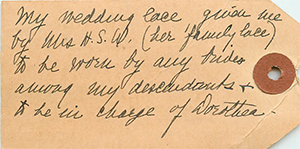 My wedding lace given me
by Mrs H.S.W. (her family lace)
to be worn by any brides
among my descendants &
to be in charge of Dorothea.